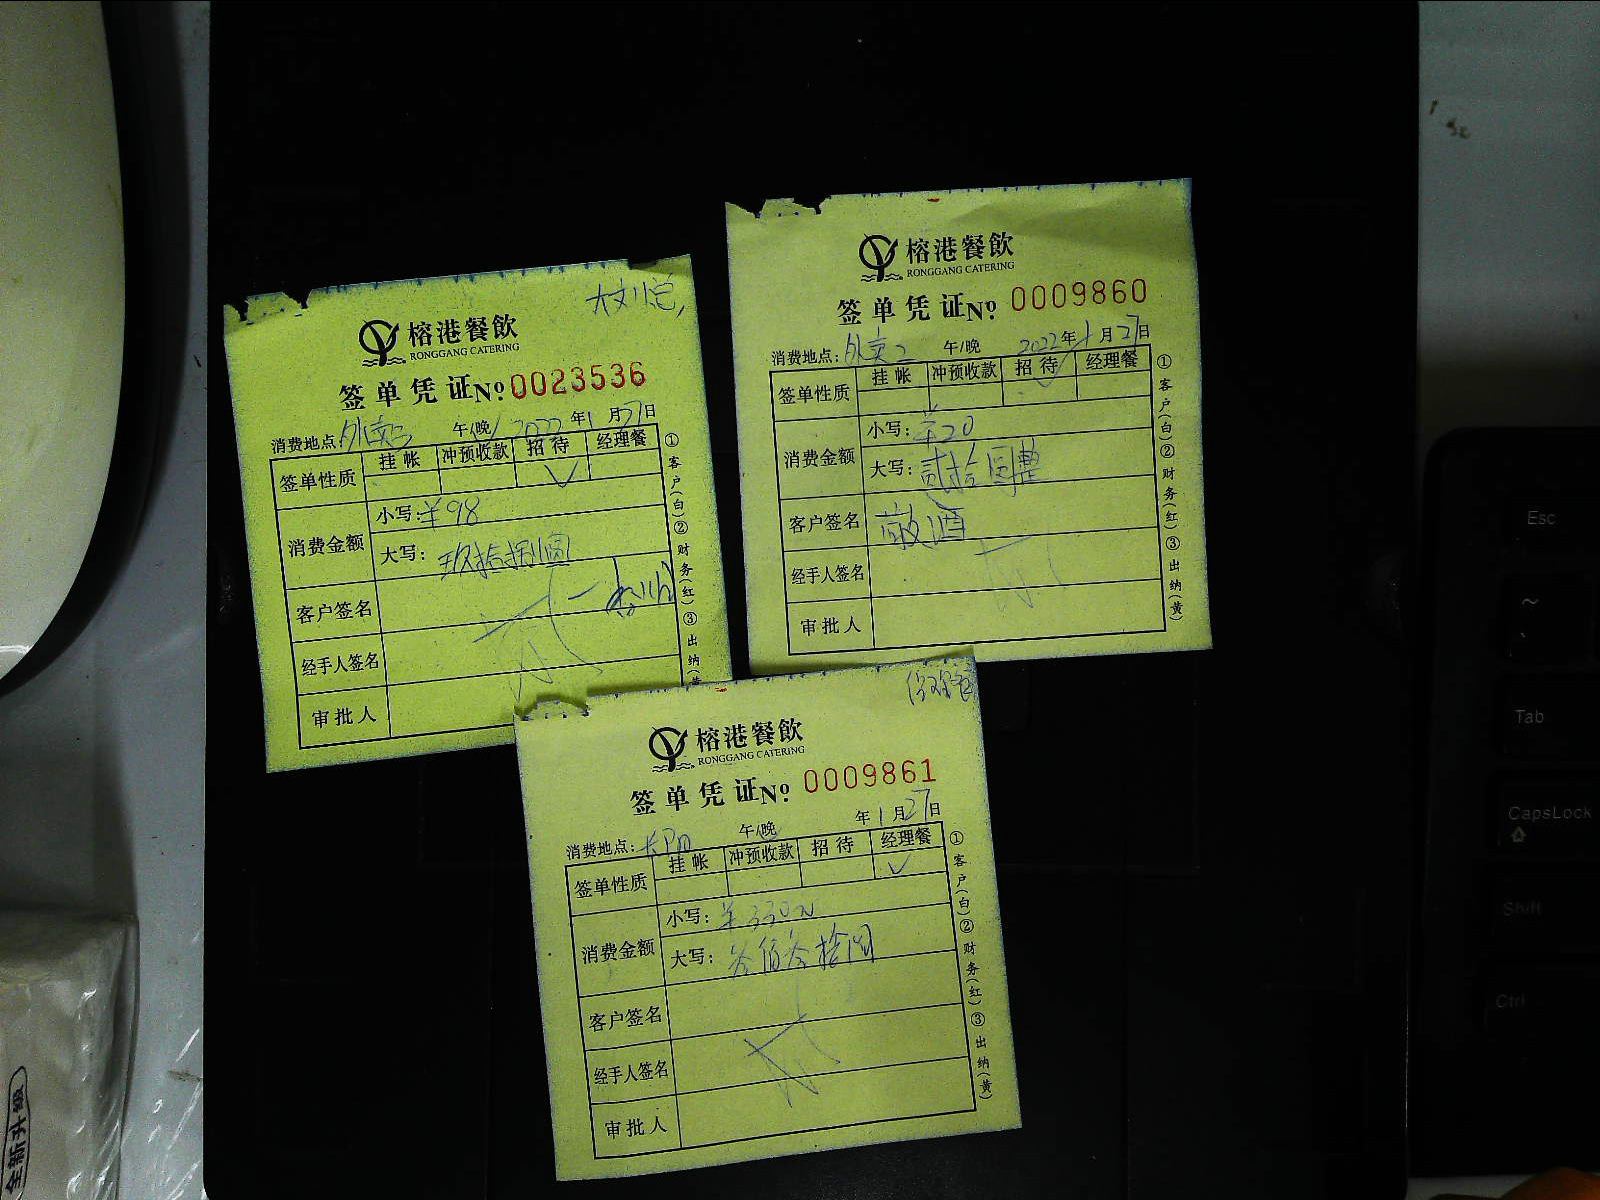 榕港餐飲
RONGGANG CATERING
签单凭证 No 0023536
消费地点 外卖 午/晚 2022年1月27日
签单性质 挂帐 冲预收款 招待 经理餐
√
消费金额
小写: ¥98
大写: 玖拾捌圆
客户签名
经手人签名
审批人
①客户(白)②财务(红)③出纳(黄
榕港餐飲
RONGGANG CATERING
签单凭证 No 0009860
消费地点: 外卖二 午/晚 2022年1月27日
签单性质 挂帐 冲预收款 招待 经理餐
√
消费金额
小写: ¥20
大写: 贰拾圆整
客户签名 敬酒
经手人签名
审批人
①客户(白)②财务(红)③出纳(黄)
榕港餐飲
RONGGANG CATERING
签单凭证 No 0009861
消费地点: 午/晚 年1月27日
签单性质 挂帐 冲预收款 招待 经理餐
√
消费金额
小写: ¥330
大写: 叁佰叁拾圆
客户签名
经手人签名
审批人
①客户(白)②财务(红)③出纳(黄)
Esc
~
Tab
CapsLock
Shift
Ctrl
全新升级